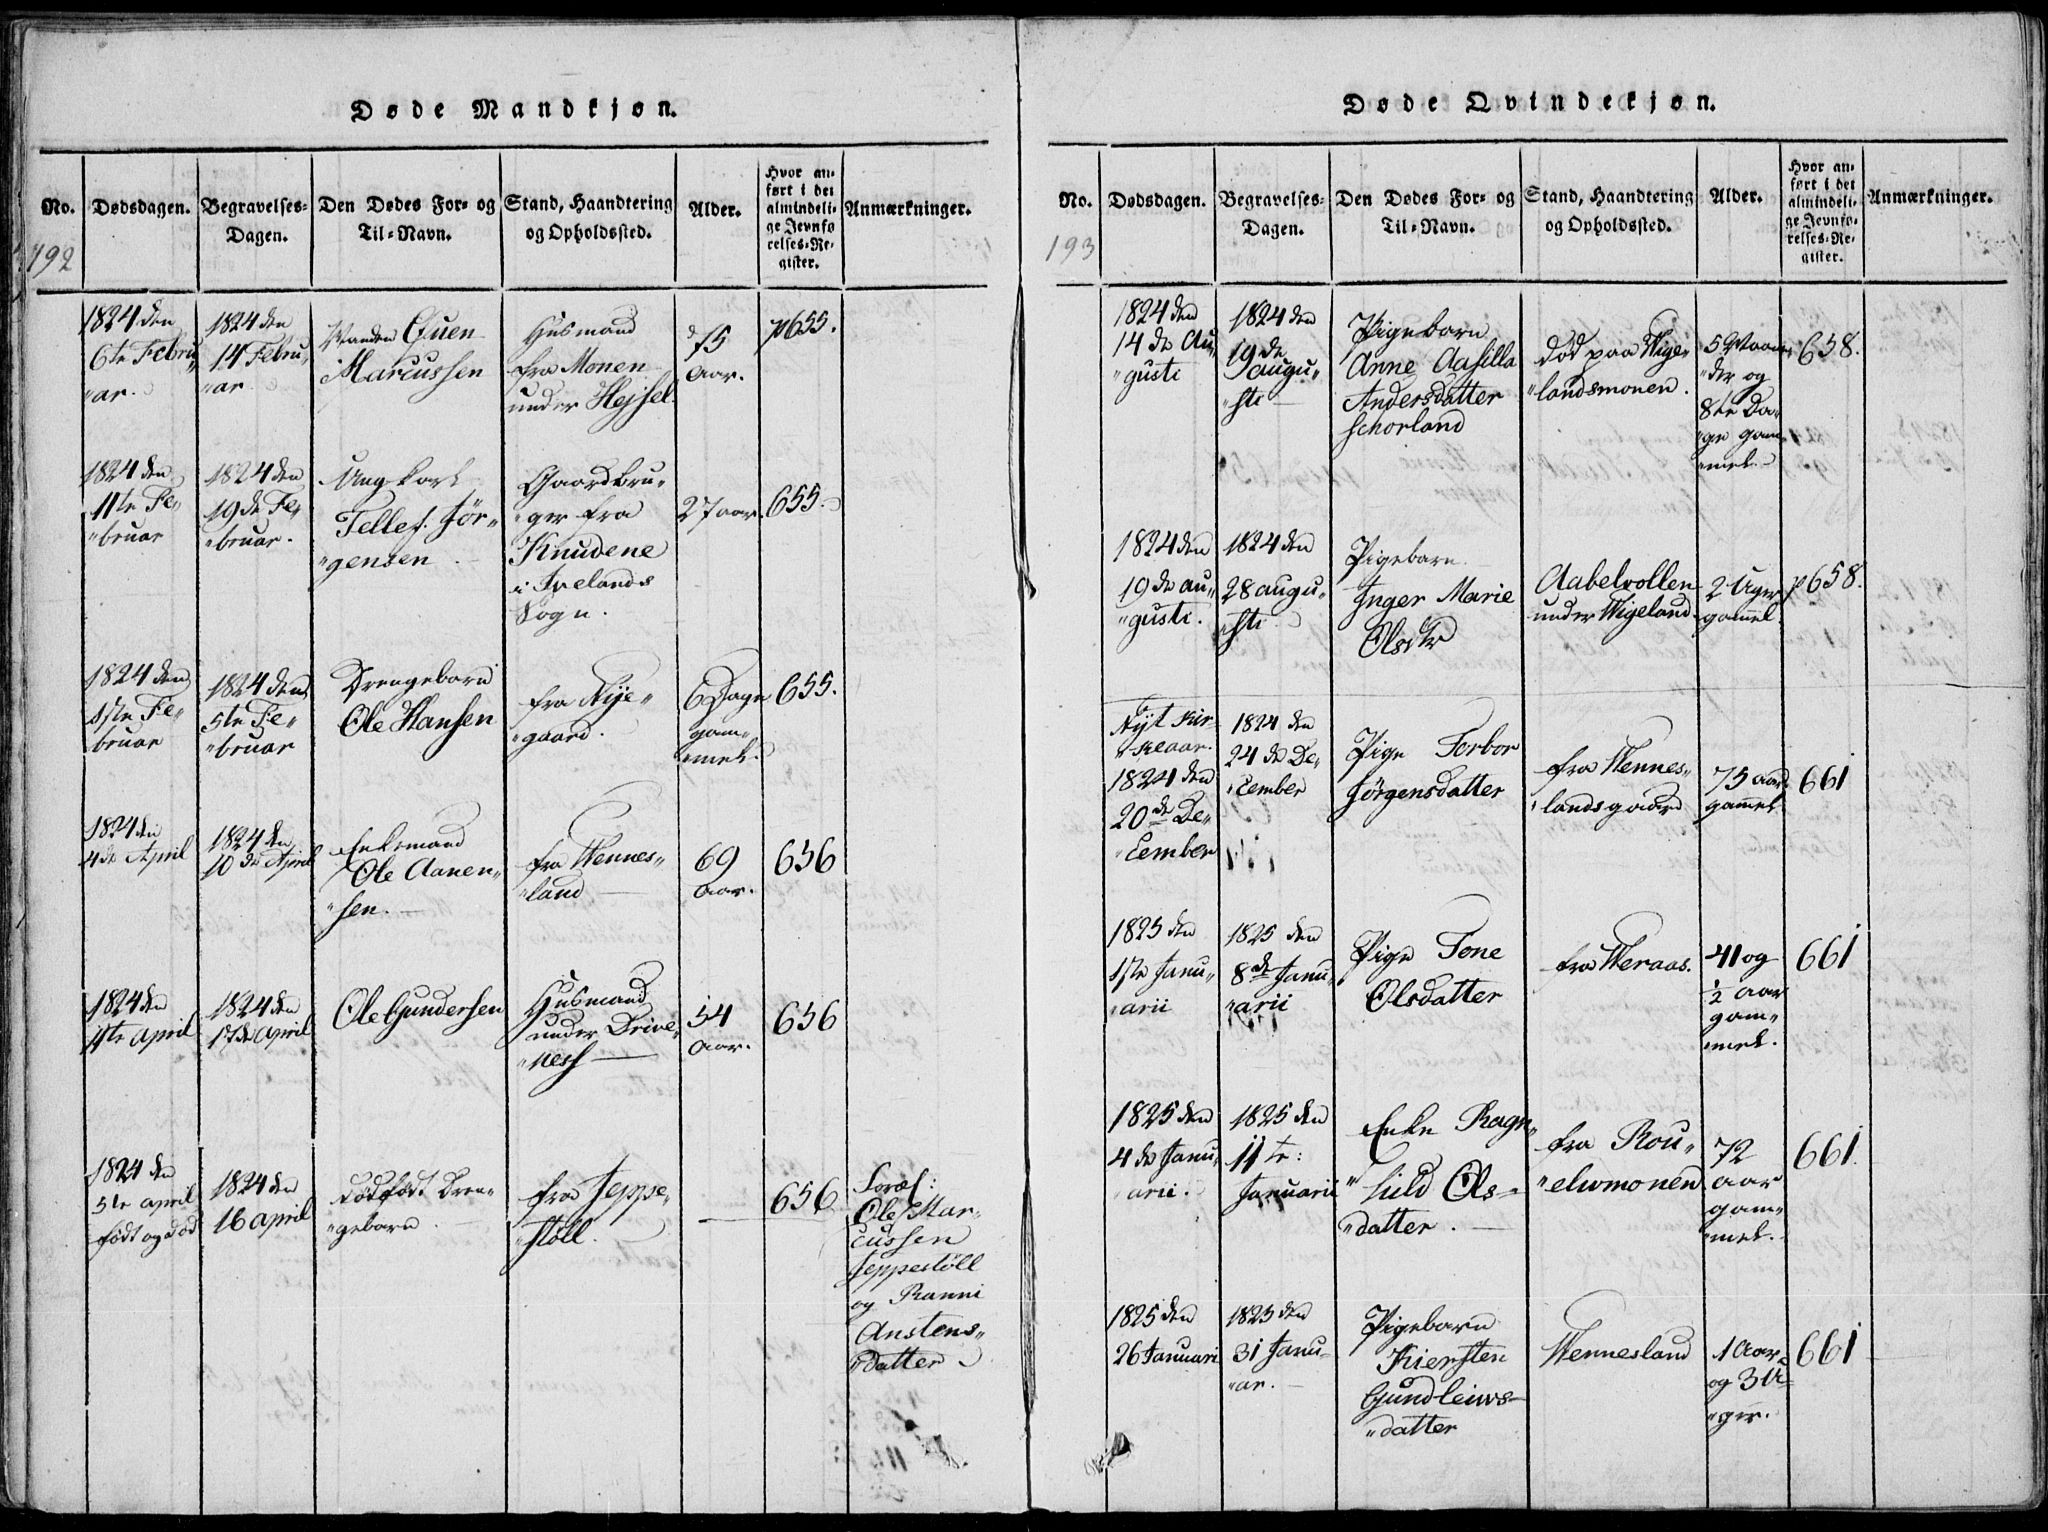 Døde Mandkjøn.
No.
Dødsdagen.
Begravelses-
Dagen.
Den Dødes For- og
Til-Navn.
Stand, Haandtering
og Opholdssted.
Alder.
Hvor an-
ført i det
almindeli-
ge Jevnfø
relses-Re-
gister.
Anmærkninger.
192
1824 den
6te Febru
"ar.
1824 den
14 Febru"
"ar
Marcussen
Husmand
fra Monen
under Hejsel.
75
Aar.
p655.
1824 den
11te Fe"
"bruar
1824 den
19de Fe"
"bruar.
Ung karl
Tellef. Jör"
"gensen
Gaardbru"
"ger fra
Knudene
i Ivelands
Sogn.
27 aar.
655.
1824 den
1ste Fe"
bruar
1824 den
5te Fe"
"bruar
Drengebarn
Ole Hansen
fra Nye"
"gaard.
6 Dage
gam"
"mel.
655.
1824 den
4de April
1824 den
10de April
Enkemand
Ole Aanen"
"sen.
fra Wennes"
"land
69
Aar.
656
1824 den
11te April
1824 den
17de April
Ole Gundersen
Husmand
under Drive"
"ness
54
Aar.
656
1824 den
5te april
födt og död
1824 den
16 april
dödfödt Dren"
"gebarn
fra Jeppe"
"stöll.
656
Foræl:
Ole Mar"
cussen
Jeppestöll
og Ranni
Anstens"
"datter
Døde Qvindekjøn.
No.
Dødsdagen.
Begravelses-
Dagen.
Den Dødes For- og
Til-Navn.
Stand, Haandtering
og Opholdssted.
Alder.
Hvor an-
ført i det
almindeli-
ge Jevnfø-
relses-Re-
gister.
Anmærkninger.
193
1824 den
14de Au"
"gusti
1824 den
19de
augu"
"sti
Pigebarn
Anne Aasille
Andersdatter
död paa Wige"
"landsmonen.
5 Maane
"der og
8te Da"
"ge gam"
"mel.
658.
1824 den
19de au"
"gusti.
1824 den
28 augu"
"sti
Pigebarn
Inger Marie
Olsdtr
Aabelvollen
under Wigeland
2 Uger
gammel.
p658.
Nyt Kir"
"keaar.
1824 den
20de De"
"cember
1824 den
24de De"
"cember
Pige Torbor
Jörgensdatter
fra Wennes"
"lands gaard
75 aar
gammel
661
1825 den
1ste Janu"
"arii
1825 den
8de Janu
"arii
Pige Tone
Olsdatter
fra Weraas.
41 og
½ aar
gam"
"mel.
661
1825 den
4de Janu"
"arii.
1825 den
11te:
Januarii
Enke Ragn"
"hild Ols"
"datter.
fra Rou"
"elwmonen
72
aar
gam"
"mel.
661.
1825 den
26 Januari
1825 den
31 Janu"
"ar.
Pigebarn
Kiersten
Gundleiws"
"datter
Wennesland
1 Aar
og 3 U"
"ger.
661